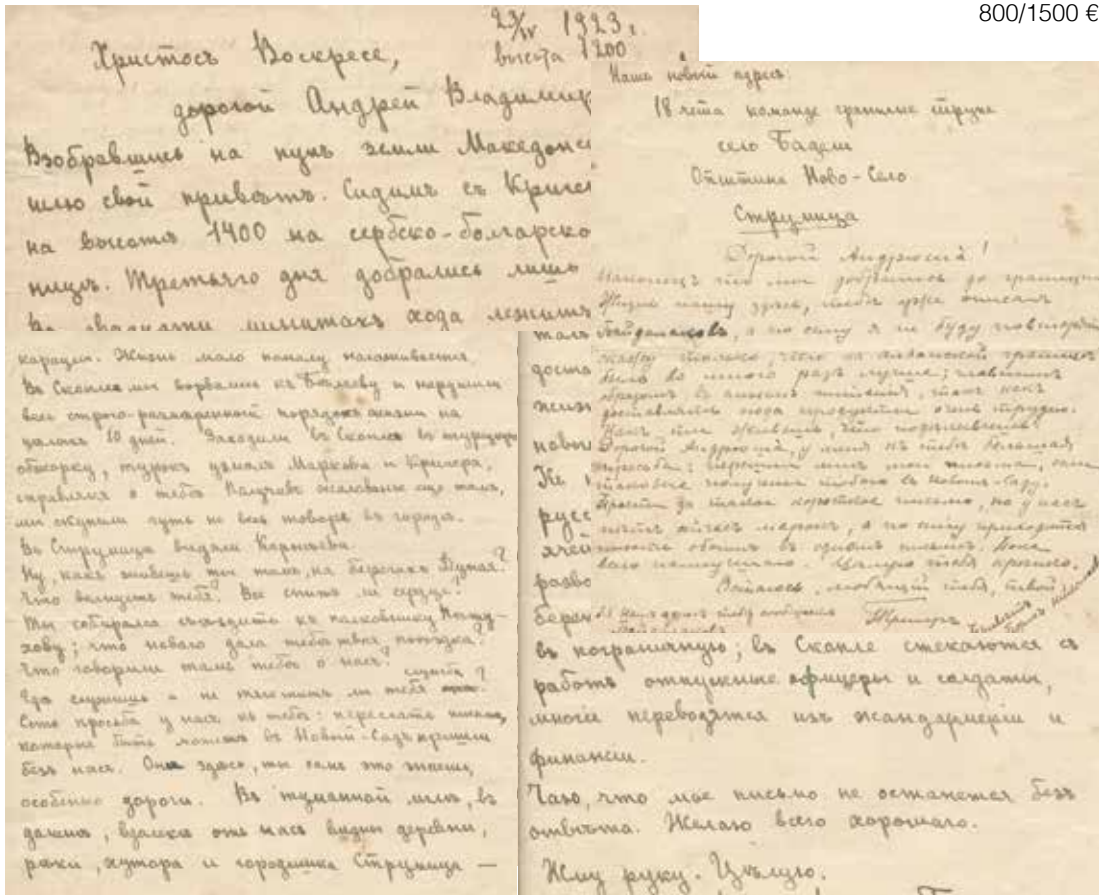 800/1500 €
23/IV 1923 г.
высота 1200
Христосъ Воскресе,
дорогой Андрей Владимир
Взобравшись на пупъ земли Македонс
шлю свой привѣтъ. Сидимъ съ Кригер
на высотѣ 1400 на сербско-болгарско
ницѣ. Третьяго дня добрались лишь
хода лежитъ
карации. Жизнь мало помалу налаживается.
Въ Скопле мы ворвались къ и нарушили
весь строго-размѣренный порядокъ жизни на
цѣлыхъ 10 дней. Заходили въ Скопле въ турецкую
обжорку, турокъ узналъ Маркова и Кригера,
справлялся о тебѣ. Получивъ жалованье еще тамъ,
мы скупили чуть не весь товаръ въ городѣ.
Въ Струмицѣ видѣли
Ну, какъ живешь ты тамъ, на берегахъ Дуная?
Что волнуетъ тебя? Все спитъ ли сердце?
Ты собирался съѣздить къ полковнику
хову; что новаго дала тебѣ твоя поѣздка?
Что говорили тамъ тебѣ о насъ?
Гдѣ служишь и не тяготитъ ли тебя служба?
Есть просьба у насъ къ тебѣ: переслать письма,
которыя быть можетъ въ Новый-Садъ пришли
безъ насъ. Они здѣсь, ты самъ это знаешь,
особенно дороги. Въ туманной мглѣ, въ
далинѣ, вдалекѣ отъ насъ видны деревни,
рѣки, хутора и городишко Струмица —
Нашъ новый адресъ:
18 чета команде граничне трупе
село Бадем
Општина Ново-Село
Струмица
Дорогой Андрюша!
Наконецъ то мы добрались до границы
Жизнь нашу здѣсь, тебѣ уже описалъ
а по сему я не буду повторять
скажу только, что на албанской границѣ
было во много разъ лучше; главнымъ
образомъ, въ отношеніи питанія, такъ какъ
доставлять сюда продукты очень трудно.
Какъ ты живешь, что подѣлываешь?
Дорогой Андрюша, у меня къ тебѣ большая
просьба: перешли мнѣ мои письма, если
таковыя получены тобою въ Новомъ-Саду.
Прости за такое короткое письмо, но у насъ
нѣтъ марокъ, а по сему приходится
писать обоимъ въ одномъ письмѣ. Пока
всего наилучшаго. Цѣлую тебя крѣпко.
Остаюсь, любящій тебя, твой
Кригеръ
талъ
доста
жизн
новы
Не
русс
ячей
разво
берем
въ пограничную; въ Скопле стекаются съ
работъ отпускные офицеры и солдаты,
многіе переводятся изъ жандармеріи и
финансіи.
Чаю, что мое письмо не останется безъ
отвѣта. Желаю всего хорошаго.
Жму руку. Цѣлую.